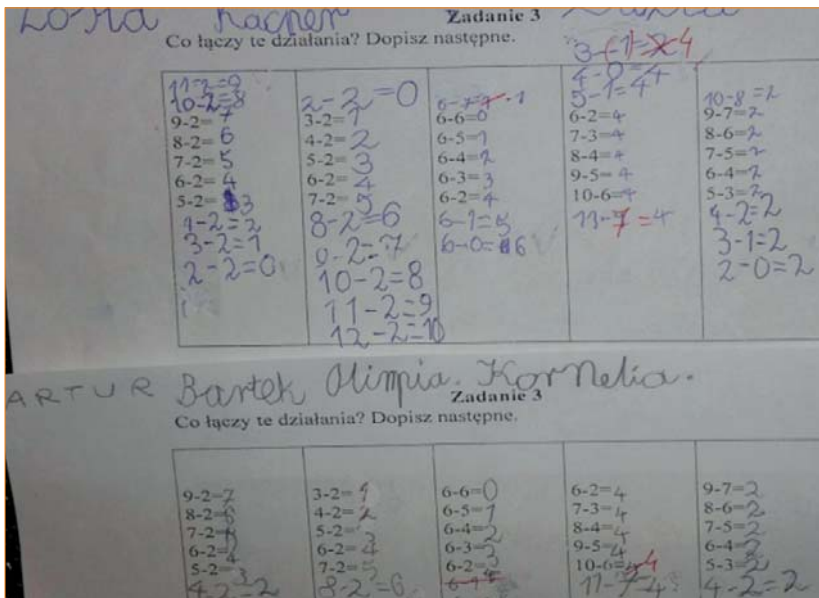 Zofia Kacper
Zadanie 3
Co łączy te działania? Dopisz następne.
11-2=9
10-2=8
9-2=7
8-2=6
7-2=5
6-2=4
5-2=3
4-2=2
3-2=1
2-2=0
2-2=0
3-2=1
4-2=2
5-2=3
6-2=4
7-2=5
8-2=6
9-2=7
10-2=8
11-2=9
12-2=10
6-7=-1
6-6=0
6-5=1
6-4=2
6-3=3
6-2=4
6-1=5
6-0=6
3-(-1)=4
4-0=4
5-1=4
6-2=4
7-3=4
8-4=4
9-5=4
10-6=4
11-7=4
10-8=2
9-7=2
8-6=2
7-5=2
6-4=2
5-3=2
4-2=2
3-1=2
2-0=2
ARTUR Bartek Olimpia. Kornelia.
Zadanie 3
Co łączy te działania? Dopisz następne.
9-2=7
8-2=6
7-2=
6-2=
5-2=3
4-2=2
3-2=1
4-2=2
5-2=3
6-2=4
7-2=5
8-2=6
6-6=0
6-5=1
6-4=2
6-3=3
6-2=
6-2=4
7-3=4
8-4=4
9-5=4
10-6=4
11-7=4
9-7=2
8-6=2
7-5=2
6-4=2
5-3=2
4-2=2